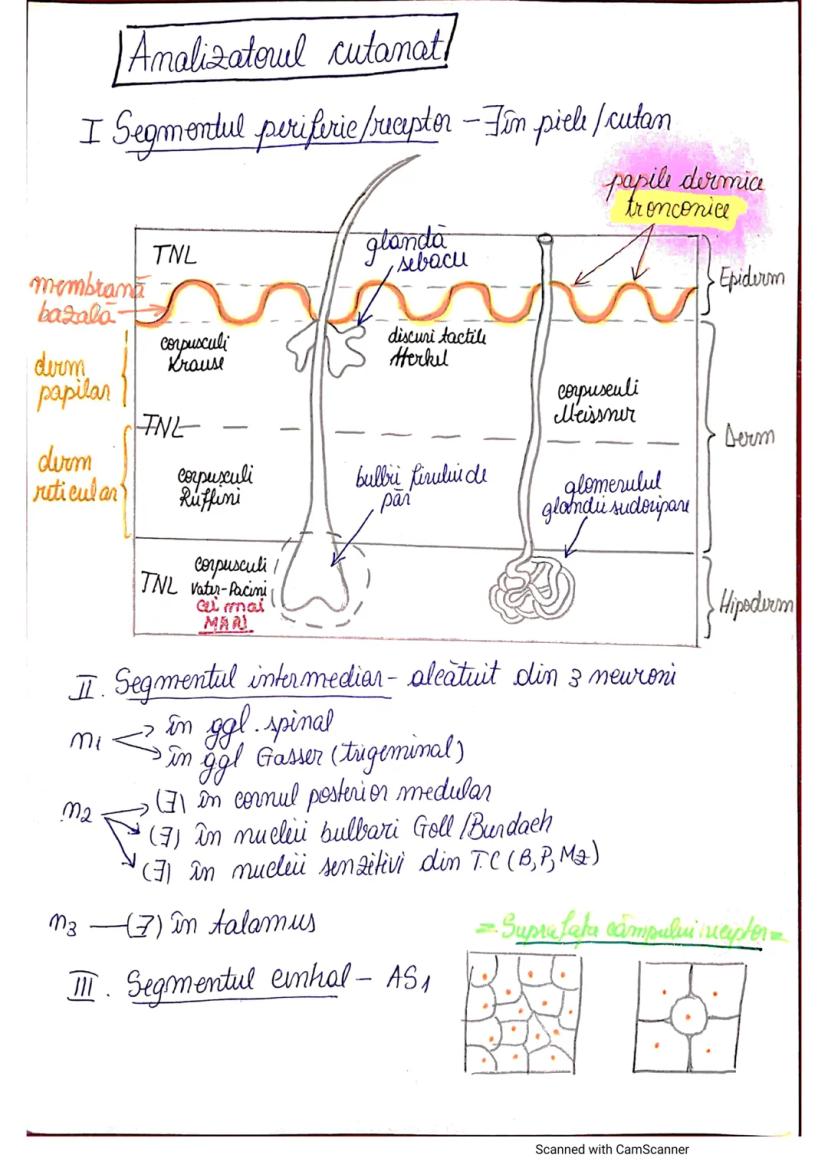 Analizatorul cutanat
I Segmentul periferic/receptor - ∃ în piele/cutan
papile dermice
tronconice
TNL
glandă
sebacee
Epiderm
membrană
bazală
corpusculi
Krause
discuri tactile
Merkel
derm
papilar
corpusculi
Meissner
TNL
Derm
derm
reticular
corpusculi
Ruffini
bulbii firului de
păr
glomerulul
glandei sudoripare
TNL
corpusculi
Vater-Pacini
cei mai
MARI
Hipoderm
II. Segmentul intermediar - alcătuit din 3 neuroni
n1 în ggl. spinal
în ggl Gasser (trigeminal)
n2 (∃) în cornul posterior medular
(∃) în nucleii bulbari Goll/Burdach
(∃) în nucleii senzitivi din T.C (B, P, Mz)
n3 — (∃) în talamus
= Suprafața câmpului receptor =
III. Segmentul central - AS1
Scanned with CamScanner